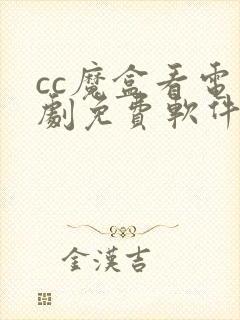 cc魔盒看電
劇免費軟件
金漢吉